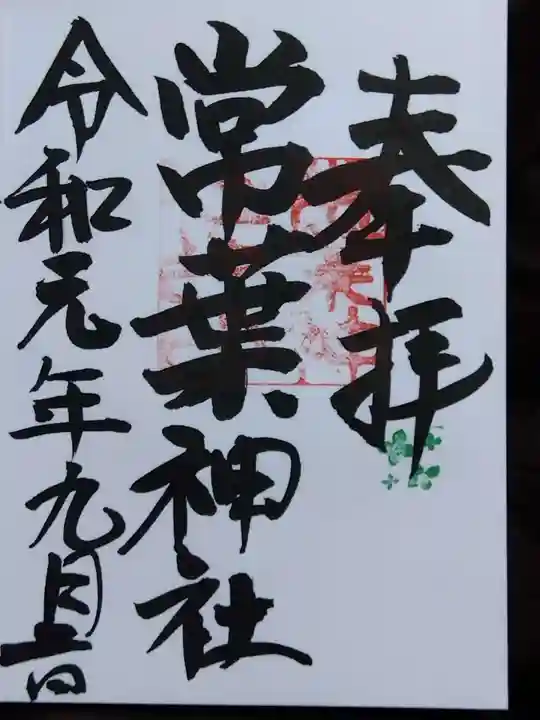 奉拝
常葉神社
令和元年九月二日